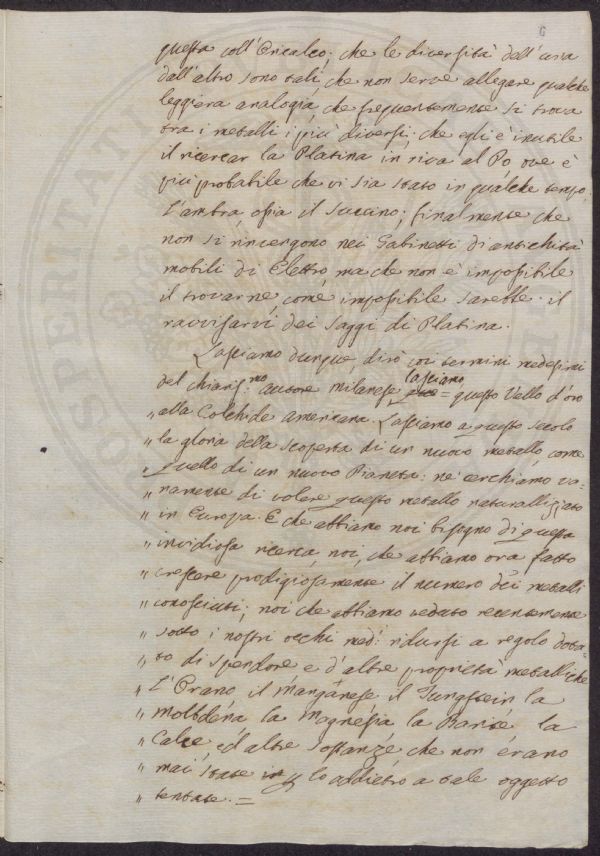 6
questa coll'Oricalco; che le diversità dell'una
dall'altro sono tali, che non serve allegare qualche
leggiera analogia, che frequentemente si trova
tra i metalli i più diversi; che egli è inutile
il ricercar la Platina in riva al Po ove è
più probabile che vi sia stato in qualche tempo
l'ambra, ossia il succino; finalmente che
non si rincengono nei Gabinetti di antichità
mobili di Elettro, ma che non è impossibile
il trovarne, come impossibile sarebbe il
ravvisarvi dei saggi di Platina.
Lasciamo dunque, dirò coi termini medesimi
del chiariss.mo autore milanese lasciamo = questo Vello d'oro
„ alla Colchide americana. Lasciamo a questo secolo
„ la gloria della scoperta di un nuovo metallo, come
„ quello di un nuovo Pianeta: nè cerchiamo va-
„ namente di volere questo metallo naturalizzato
„ in Europa. E che abbiamo noi bisogno di questa
„ invidiosa ricerca, noi, che abbiamo ora fatto
„ crescere prodigiosamente il numero dei metalli
„ conosciuti; noi che abbiamo veduto recentemente
„ sotto i nostri occhi med.i ridursi a regolo dota-
„ to di spendore e d'altre proprietà metalliche
„ L'Urano, il manganese il Tungstein la
„ Molbdena la Magnesia la Barite la
„ Calce ed altre sostanze che non erano
„ mai state in lo addietro a tale oggetto
„ tentate. =
PROSPERITATI